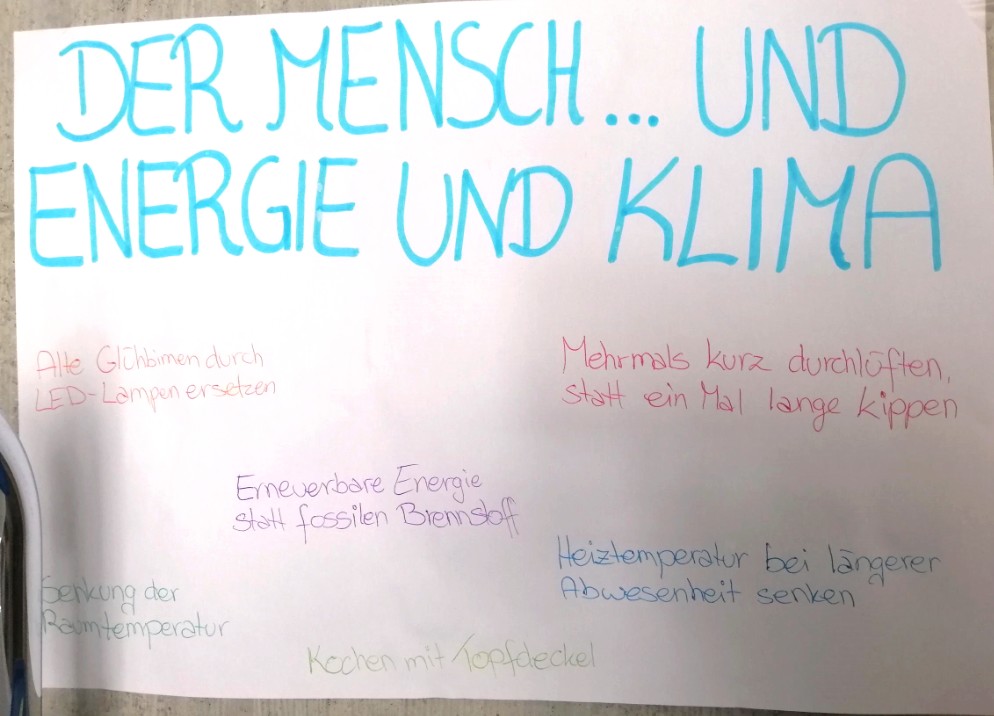 DER MENSCH... UND
ENERGIE UND KLIMA
Alte Glühbirnen durch
LED-Lampen ersetzen
Mehrmals kurz durchlüften,
statt ein Mal lange kippen
Erneuerbare Energie
statt fossilen Brennstoff
Heiztemperatur bei längerer
Abwesenheit senken
Senkung der
Raumtemperatur
Kochen mit Topfdeckel